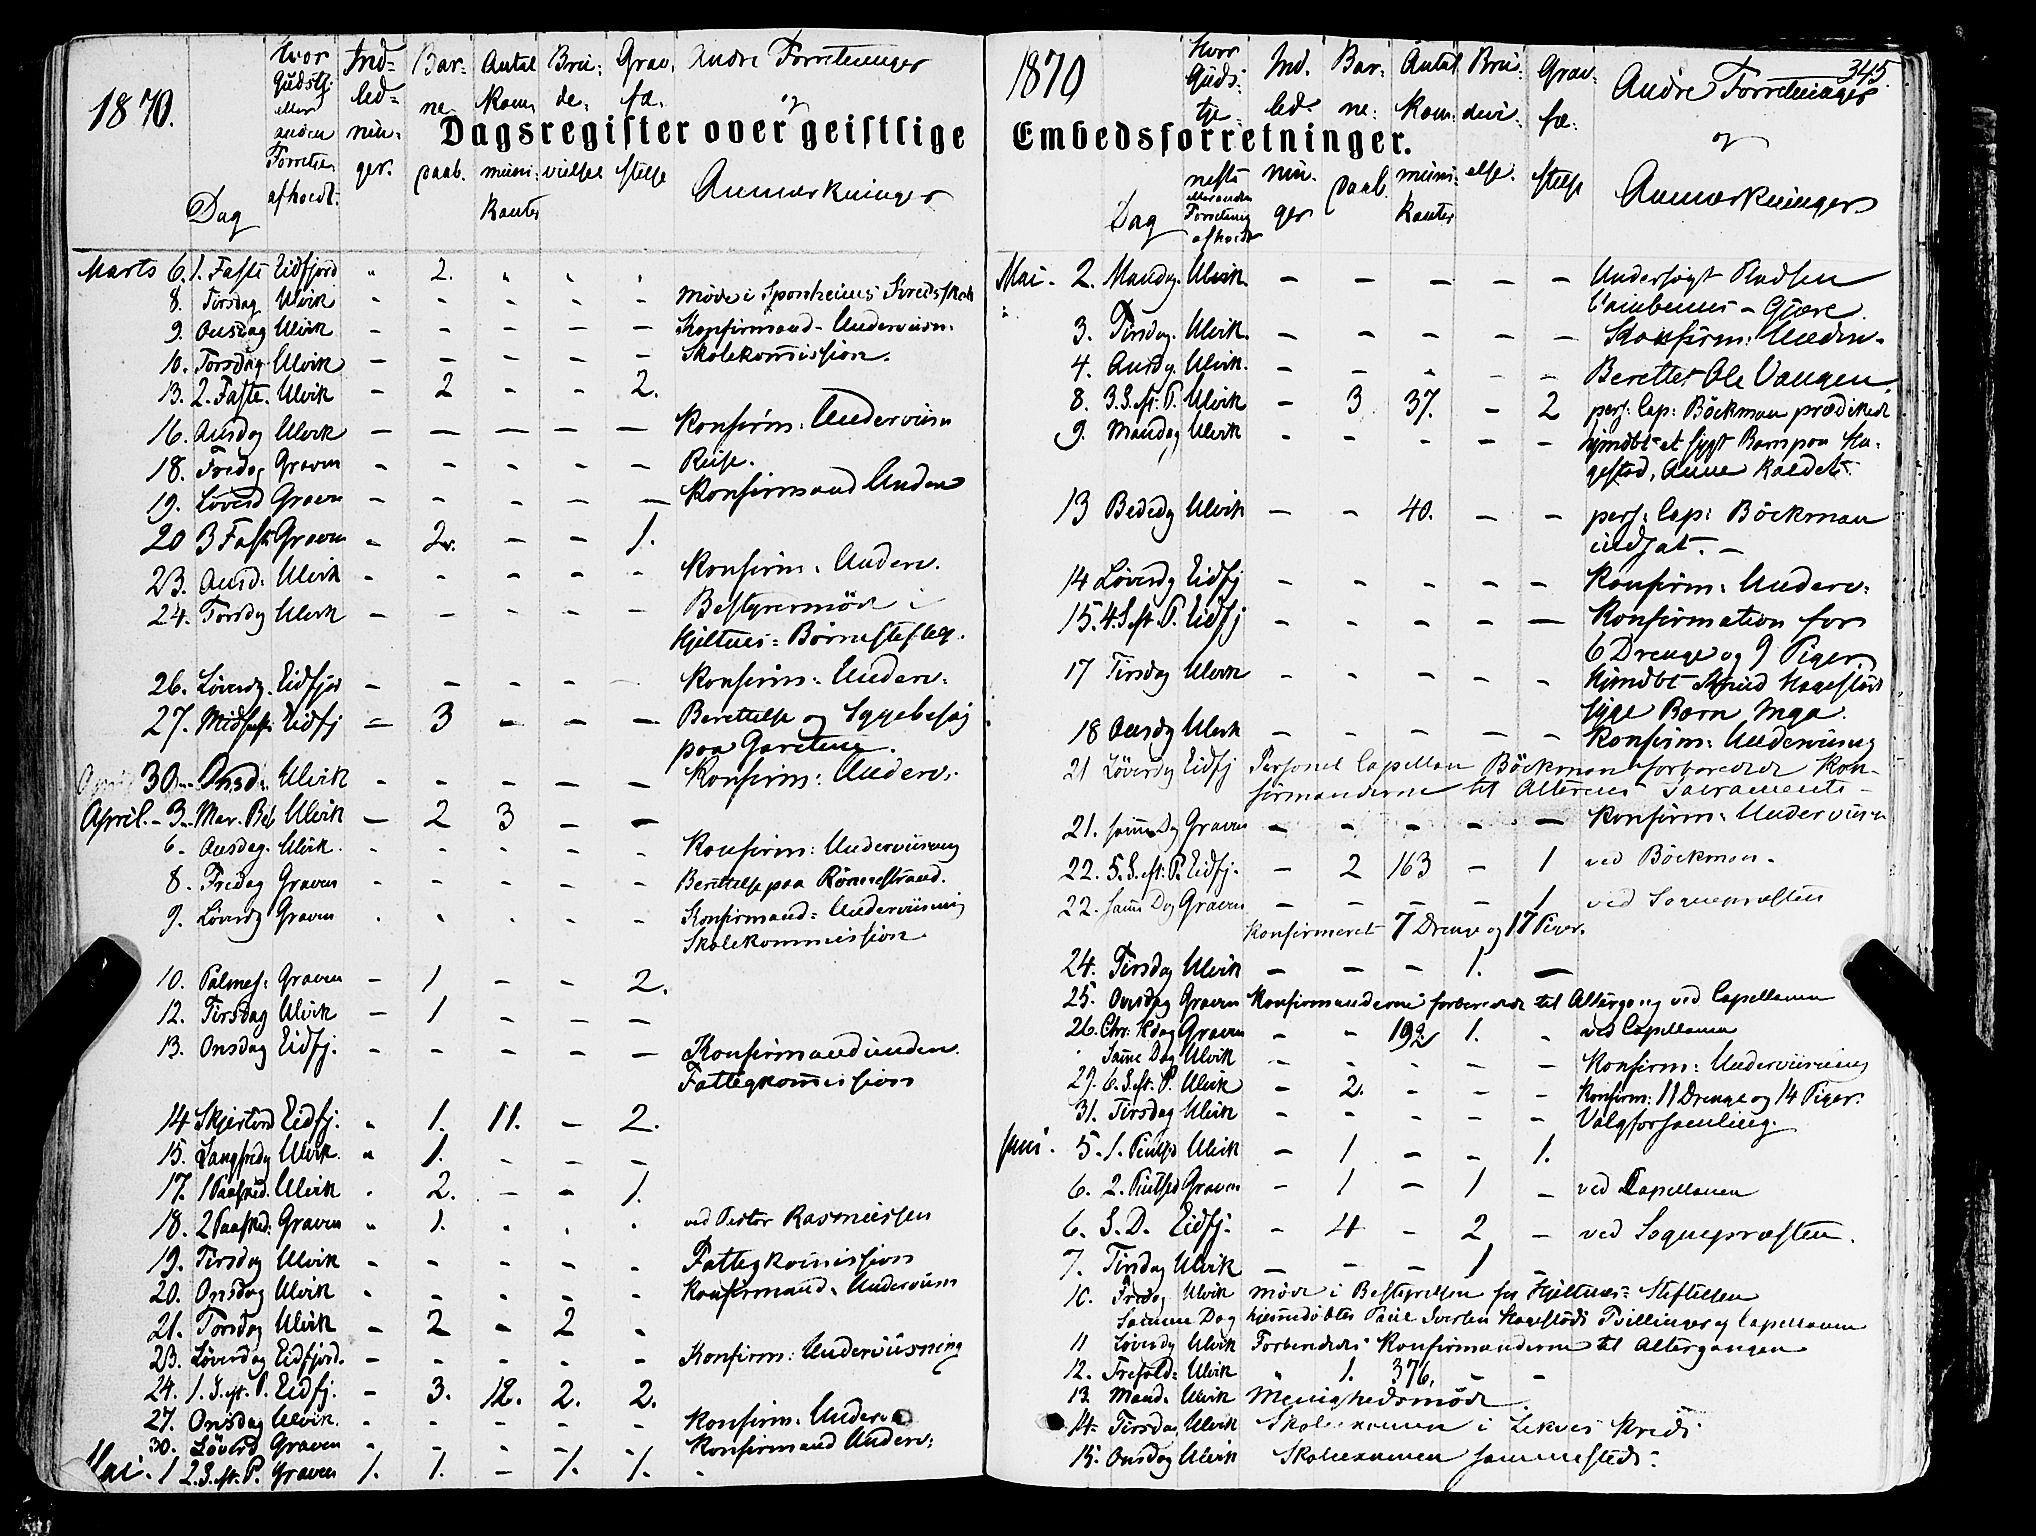 1870.
Dag
Hvor Gudstj. eller anden Forretn. afholdt.
Ind-led-nin-ger.
Bar-ne-daab.
Antal Kom-muni-kanter
Bru-de-vielse
Grav-fæ-stelse
Andre Forretninger og Anmærkninger
Dagsregister over geistlige
Marts 6. 1. Faste Eidfjord " 2. " " "
8. Tirsdag Ulvik - - - - - Møde i Sponheims Kredsskole
9. Onsdag Ulvik - - - - - Konfirmand-Underviisn.
10. Torsdag Ulvik - - - - - Skolekommission.
13. 2. Faste. Ulvik - 2 - - 2.
16. Onsdag Ulvik - - - - - Konfirm: Underviisn
18. Fredag Graven - - - - - Reise.
19. Løverd Graven - - - - - Konfirmand Underv
20 3 Faste Graven - 2. - - 1.
23. Onsd: Ulvik - - - - - Konfirm. Underv.
24. Torsdag Ulvik - - - - - Bestyrermøde i
Hjeltnes-Børnestiftelse.
26. Løverdg. Eidfjord - - - - - Konfirm: Underv:
27. Midfast Eidfj - 3 - - - Berettelse og Sygebesøg
paa
30. Onsd: Ulvik - - - - - Konfirm: Underv:
April - 3. Mar. Beb Ulvik - 2 3 - -
6. Onsdag. Ulvik. - - - - - Konfirm: Underviisning
8. Fredag Graven - - - - - Berettelse paa Rønnestrand.
9. Løverdg Graven - - - - - Konfirmand-Underviisning
Skolekommission
10. Palmes: Graven - 1 - - 2.
12. Tirsdag Ulvik - 1 - - -
13. Onsdag Eidfj. - - - - - Konfirmandunderv.
Fattigkommission
14 Skjertorsd Eidfj. " 1. 11. - 2.
15. Langfredg Ulvik " 1. - - -
17. 1 Paaskd. Ulvik . 2. - - 1.
18. 2 Paaskd. Graven " 1. . . . ved Pastor Rasmussen
19. Tirsdag Ulvik - - - - - Fattigkommission
20. Onsdag Ulvik - - - - - Konfirmand-Underviisn
21. Torsdag Ulvik - 2 - 2 -
23. Løverdag Eidfjord. - - - - - Konfirm: Underviisning
24. 1. S. eft. P. Eidfj. - 3. 12. 2. 2.
27. Onsdag Ulvik. - - - - - Konfirm: Underv
30. Løverd Graven - - - - - Konfirmand Underv:
Mai. 1 2. S. eft. P. Graven 1. 1. - 1. 1. -
1870
345.
Dag
Hvor Guds-tje-neste eller anden Forretning afholdt
Ind-led-nin-ger
Bar-ne-daab
Antal Kom-muni-kanter
Bru-devi-else.
Grav-fæ-stelse
Andre Forretninger og Anmærkninger
Embedsforretninger.
Mai. 2. Mandag. Ulvik - - - - - Undersøgt
3. Tirsdag. Ulvik. - - - - - Konfirm: Underv.
4. Onsdg. Ulvik. - - - - - Berettet Ole Vangen
8. 3. S. eft. P. Ulvik - 3 37. - 2 pers: Cap: Böckman prædikede
9. Mandag Ulvik - - - - - hjmdbt et sygt Barn paa Ha-
gestad, Anne kaldet.
13 Bededg Ulvik - - 40. - - pers: Cap: Böckman
indsat. -
14 Løverdg Eidfj - - - - - Konfirm: Underv:
15. 4. S. eft. P. Eidfj - - - - - Konfirmation for
6 Drenge og 9 Piger
17 Tirsdag Ulvik - - - - - hjmdbt Hagestads
syge Barn Inga.
18 Onsdg Ulvik - - - - - Konfirm: Underviisning
21 Løverdg Eidfj Personel Capellan Böckman forberedede Kon-
firmanderne til Alterens Sacramente -
21. samme Dg Graven - - - - - Konfirm: Underviisn
22. 5. S. eft. P. Eidfj. - 2 163 - 1 ved Böckman.
22. samme Dg Graven - - - - 1 ved Sognepræsten
Konfirmeret 7 Drenge og 17 Piger.
24. Tirsdag Ulvik - - - 1. -
25. Onsdag Graven Konfirmanderne forberedede til Altergang ved Capellanen
26. Chr: Hdag Graven - - 192 1. - ved Capellanen
Samme Dag Ulvik - - - - - Konfirm: Underviisning
29. 6. S. eft. P. Ulvik - 2. - - - Konfirm: 11 Drenge og 14 Piger.
31. Tirsdag Ulvik - - - - - Valgforsamling.
Juni. 5. 1. Pintsd Ulvik - 1 - - 1.
6. 2. Pintsd Graven - 1 - 1 - ved Capellanen
6. S. D. Eidfj. - 4 - 2 - ved Sognepræsten.
7. Tirsdag Ulvik - - - 1 -
10. Fredag Ulvik møde i Bestyrelsen for Hjeltnes-Stiftelsen
Samme Dag hjemmedøbtes Hagestads Tvillinger af Capellanen
11 Løverdg Ulvik Forberededes Konfirmanderne til Altergangen
12. Trefold. Ulvik " 1. 376. - -
13. Mand. Ulvik Menighedsmøde
14. Tirsdag Ulvik Skoleexamen i Lekves Kreds
15. Onsdag Ulvik Skoleexamen sammesteds.